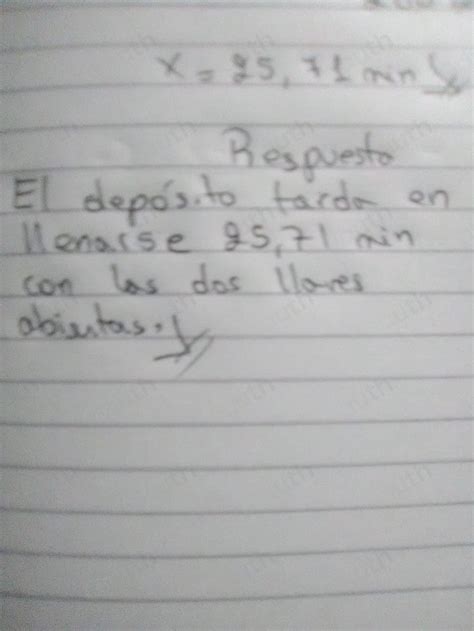 x = 25,71 min
Respuesta
El depósito tarda en
llenarse 25,71 min
con las dos llaves
abiertas.